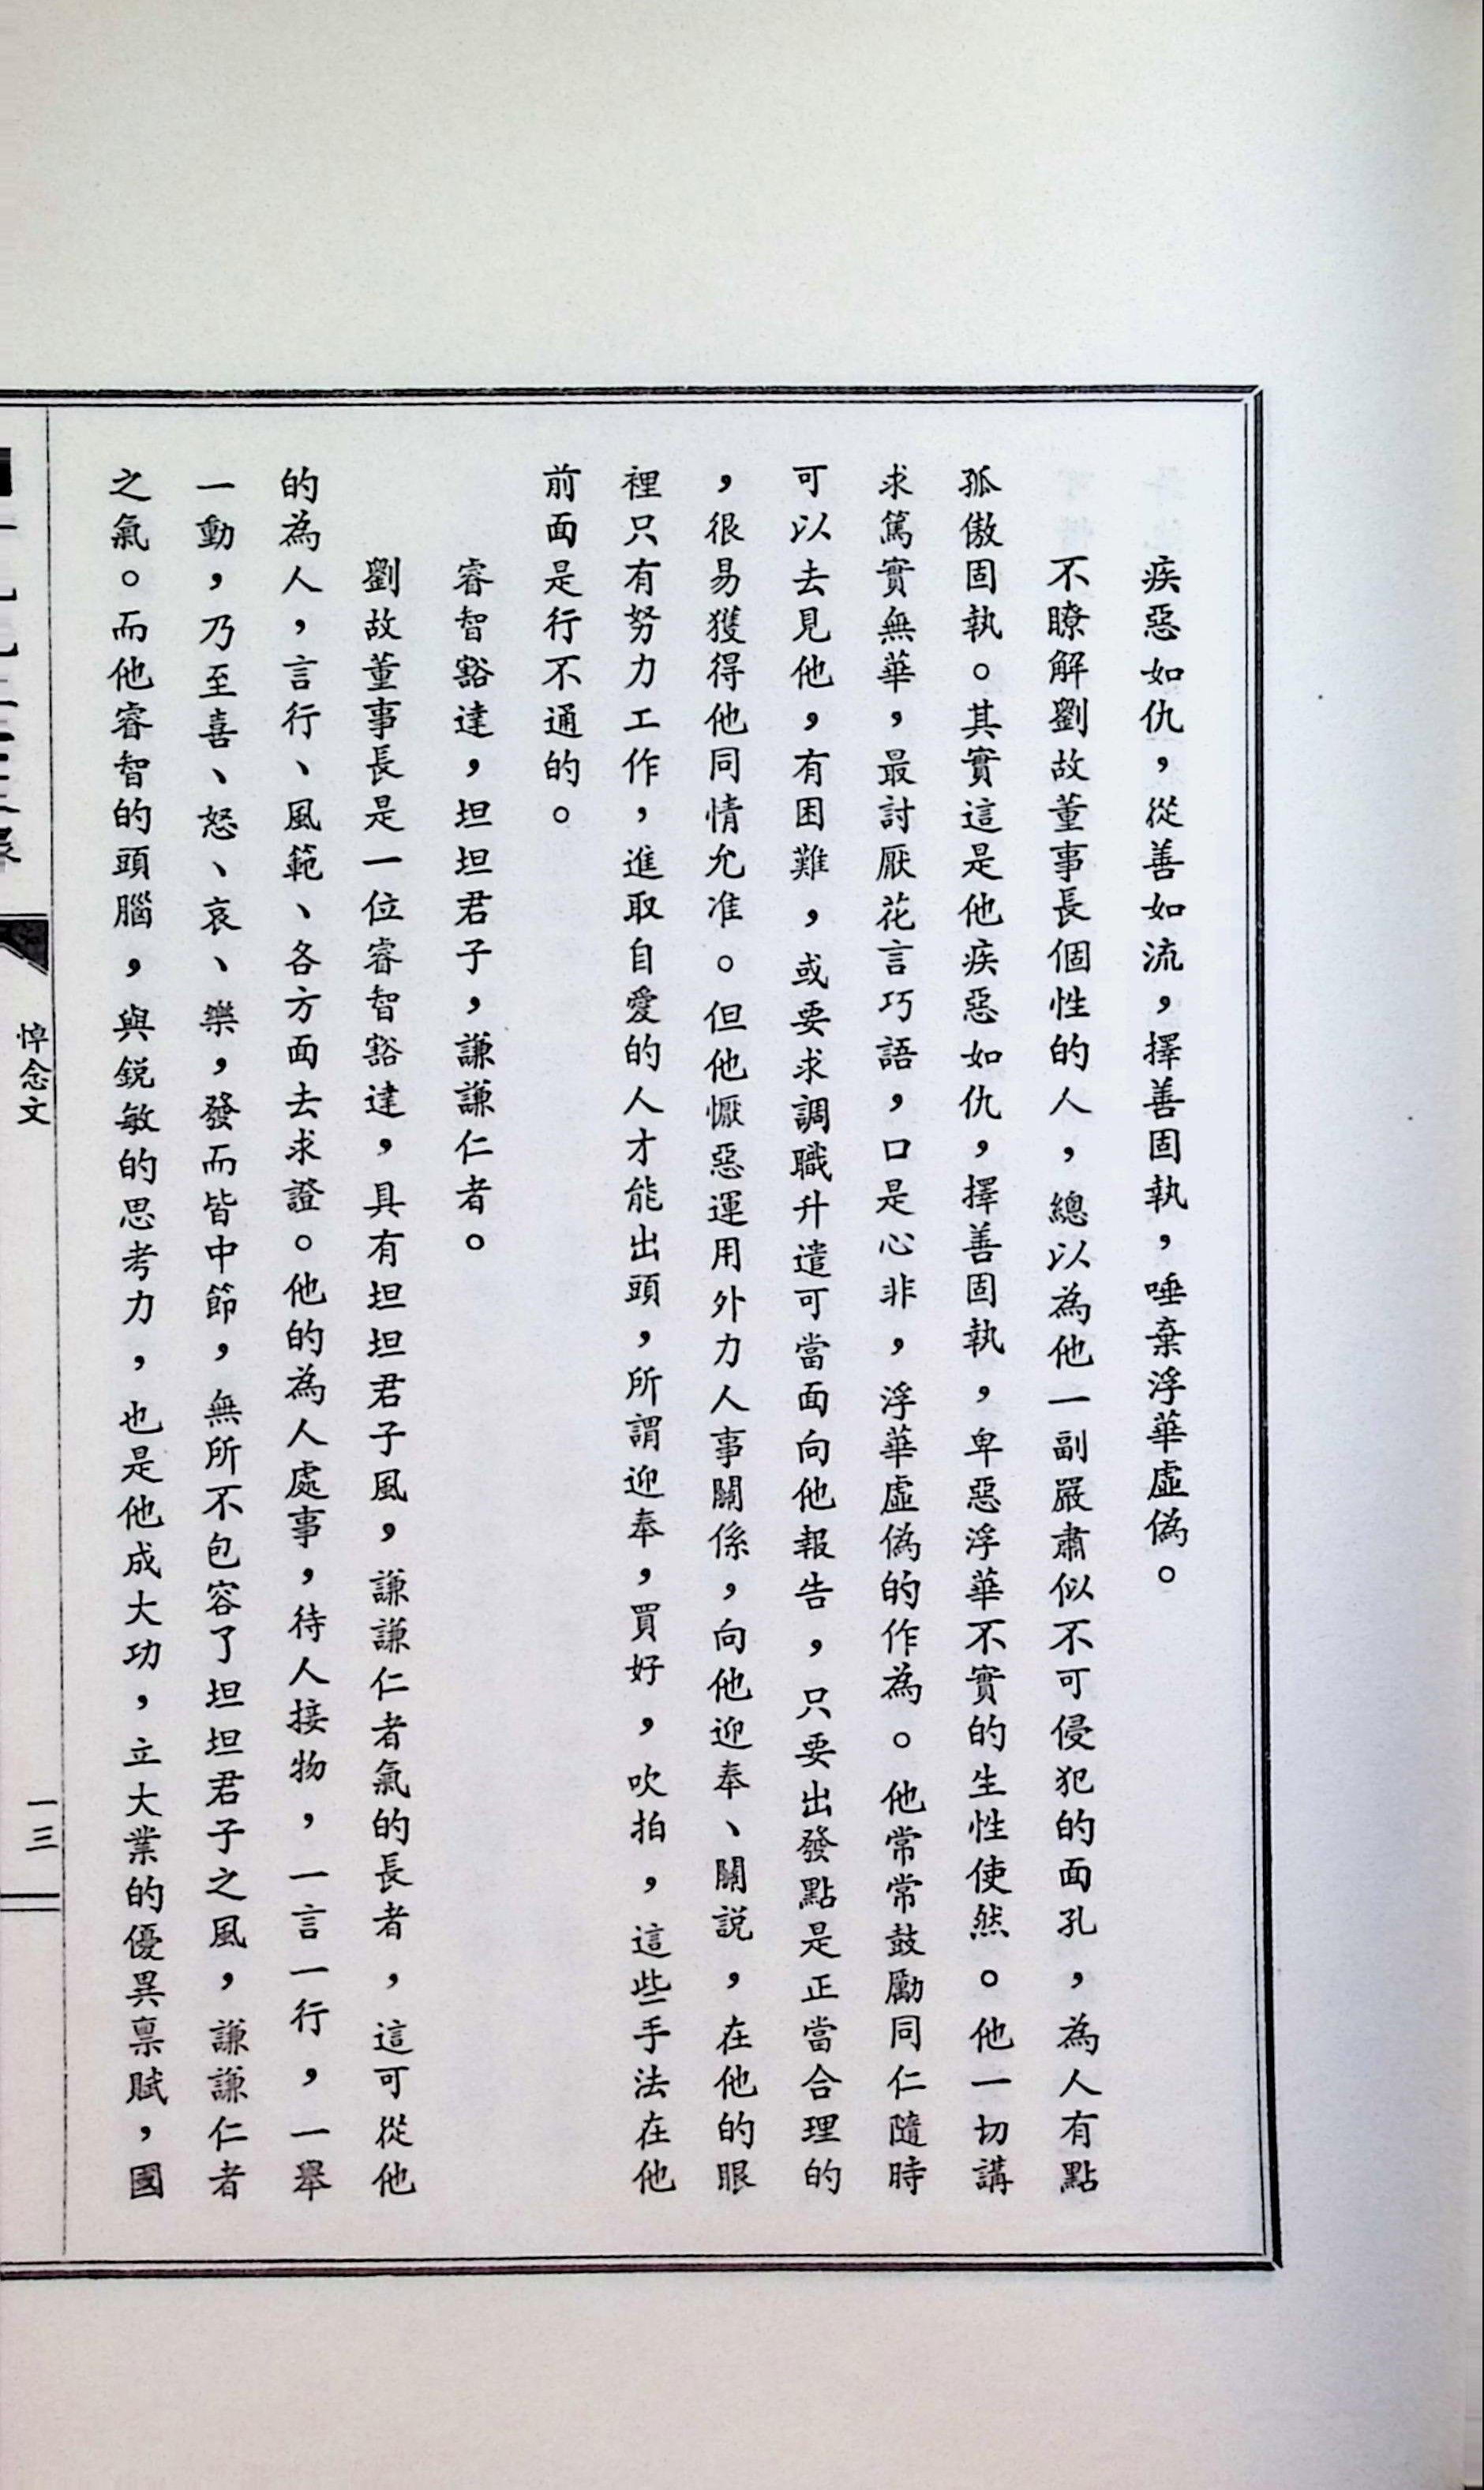 疾惡如仇，從善如流，擇善固執，唾棄浮華虛偽。
不瞭解劉故董事長個性的人，總以為他一副嚴肅似不可侵犯的面孔，為人有點
孤傲固執。其實這是他疾惡如仇，擇善固執，卑惡浮華不實的生性使然。他一切講
求篤實無華，最討厭花言巧語，口是心非，浮華虛偽的作為。他常常鼓勵同仁隨時
可以去見他，有困難，或要求調職升遣可當面向他報告，只要出發點是正當合理的
，很易獲得他同情允准。但他懨惡運用外力人事關係，向他迎奉、關說，在他的眼
裡只有努力工作，進取自愛的人才能出頭，所謂迎奉，買好，吹拍，這些手法在他
前面是行不通的。
睿智豁達，坦坦君子，謙謙仁者。
劉故董事長是一位睿智豁達，具有坦坦君子風，謙謙仁者氣的長者，這可從他
的為人，言行、風範、各方面去求證。他的為人處事，待人接物，一言一行，一舉
一動，乃至喜、怒、哀、樂，發而皆中節，無所不包容了坦坦君子之風，謙謙仁者
之氣。而他睿智的頭腦，與銳敏的思考力，也是他成大功，立大業的優異禀賦，國
悼念文
一三